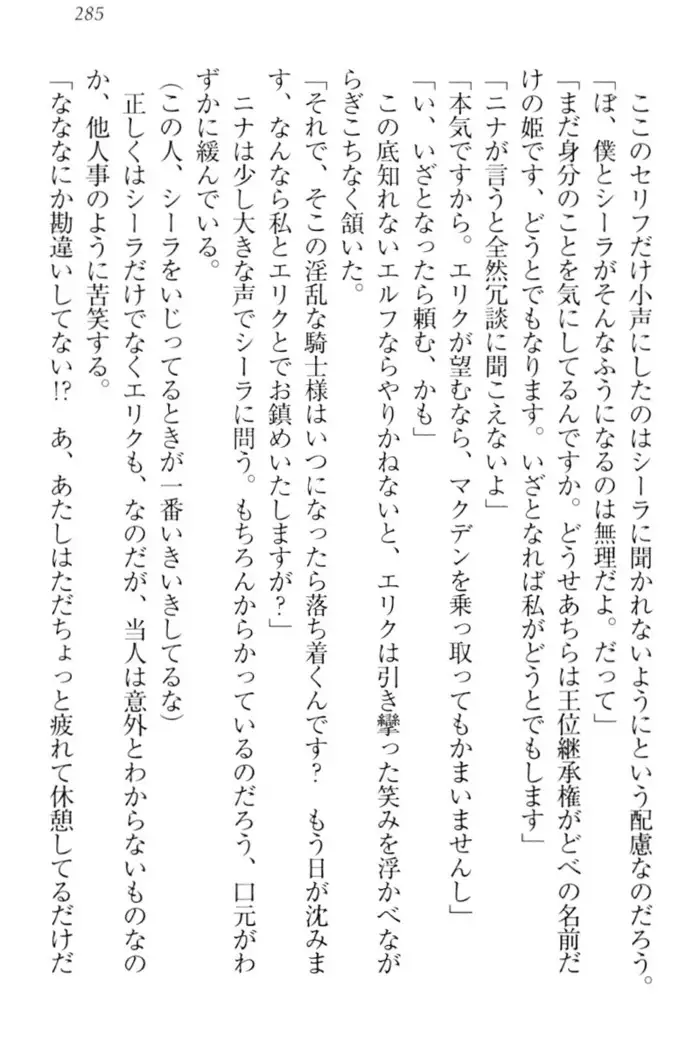 285
ここのセリフだけ小声にしたのはシーラに聞かれないようにという配慮なのだろう。
「ぼ、僕とシーラがそんなふうになるのは無理だよ。だって」
「まだ身分のことを気にしてるんですか。どうせあちらは王位継承権がどべの名前だ
けの姫です、どうとでもなります。いざとなれば私がどうとでもします」
「ニナが言うと全然冗談に聞こえないよ」
「本気ですから。エリクが望むなら、マクデンを乗っ取ってもかまいませんし」
「い、いざとなったら頼む、かも」
この底知れないエルフならやりかねないと、エリクは引き攣った笑みを浮かべなが
らぎこちなく頷いた。
「それで、そこの淫乱な騎士様はいつになったら落ち着くんです？　もう日が沈みま
す、なんなら私とエリクとでお鎮めいたしますが？」
ニナは少し大きな声でシーラに問う。もちろんからかっているのだろう、口元がわ
ずかに緩んでいる。
(この人、シーラをいじってるときが一番いきいきしてるな)
正しくはシーラだけでなくエリクも、なのだが、当人は意外とわからないものなの
か、他人事のように苦笑する。
「なななにか勘違いしてない!?　あ、あたしはただちょっと疲れて休憩してるだけだ